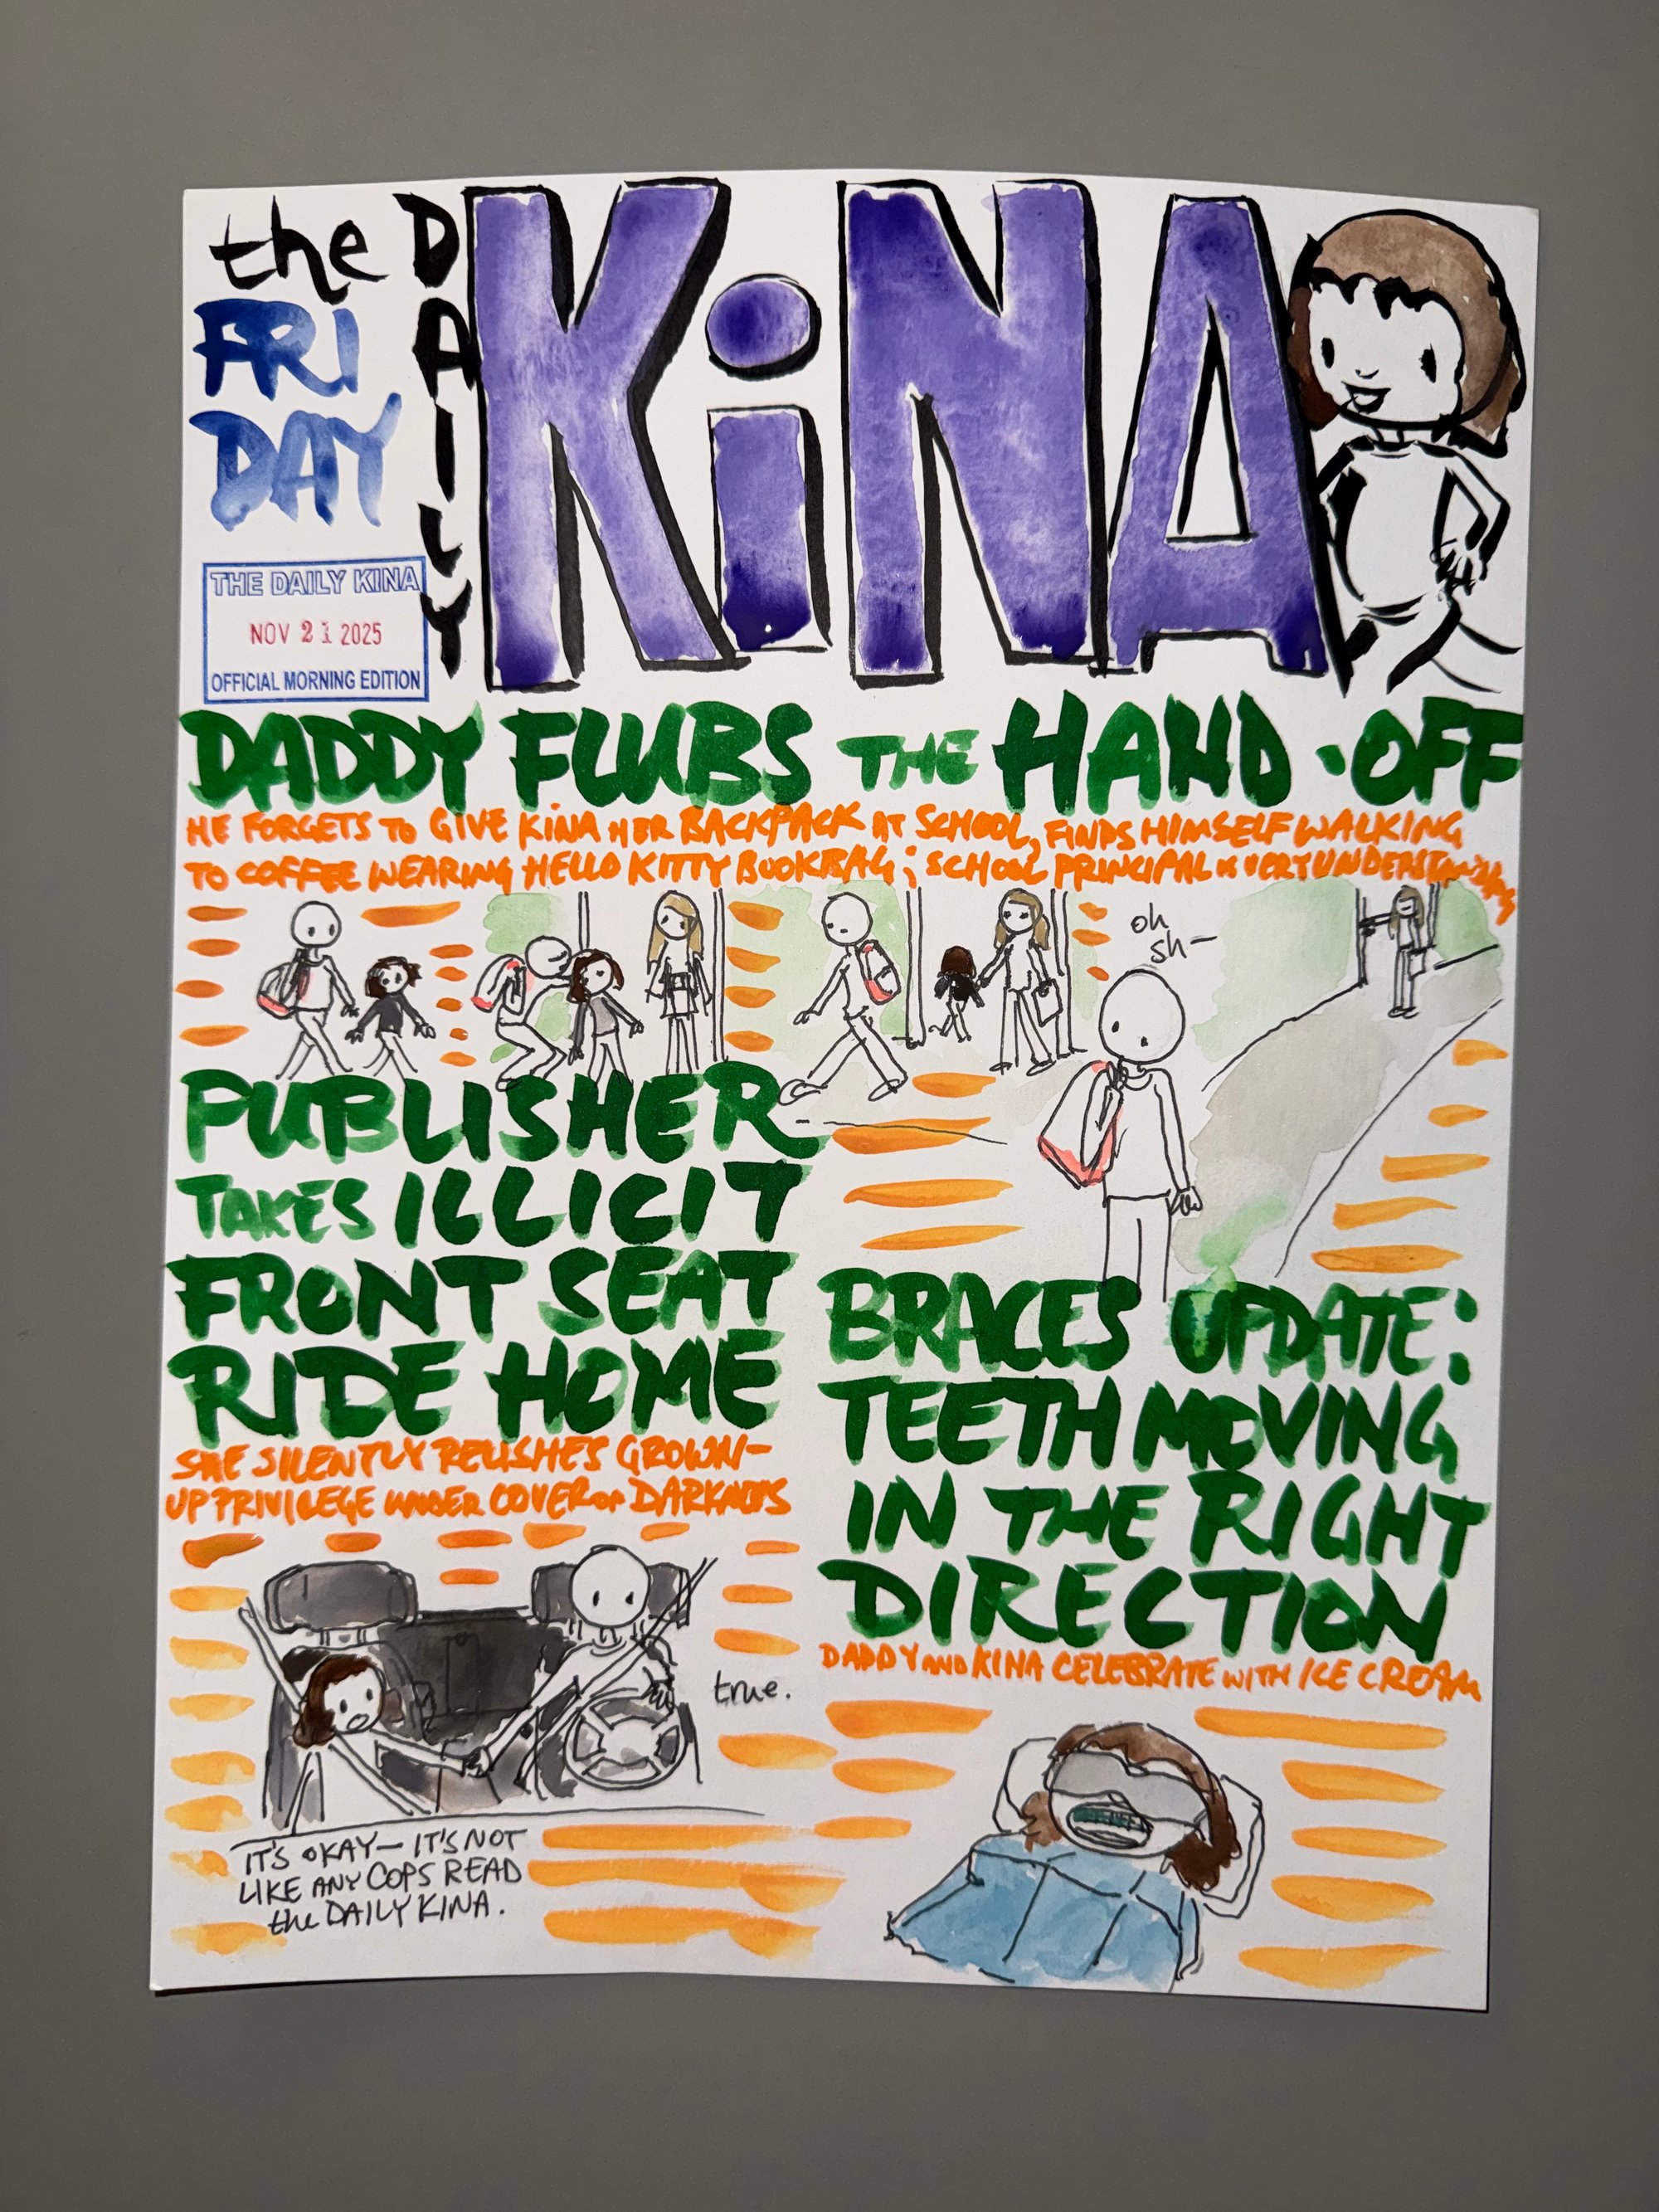 the
FRI
DAY
DAILY
KiNA
THE DAILY KINA
NOV 21 2025
OFFICIAL MORNING EDITION
DADDY FLUBS THE HAND-OFF
HE FORGETS TO GIVE KINA HER BACKPACK AT SCHOOL, FINDS HIMSELF WALKING
TO COFFEE WEARING HELLO KITTY BOOKBAG; SCHOOL PRINCIPAL IS VERY UNDERSTANDING
oh
sh—
PUBLISHER
TAKES ILLICIT
FRONT SEAT
RIDE HOME
SHE SILENTLY RELISHES GROWN-
UP PRIVILEGE UNDER COVER OF DARKNESS
true.
IT'S OKAY— IT'S NOT
LIKE ANY COPS READ
the DAILY KINA.
BRACES UPDATE:
TEETH MOVING
IN THE RIGHT
DIRECTION
DADDY AND KINA CELEBRATE WITH ICE CREAM